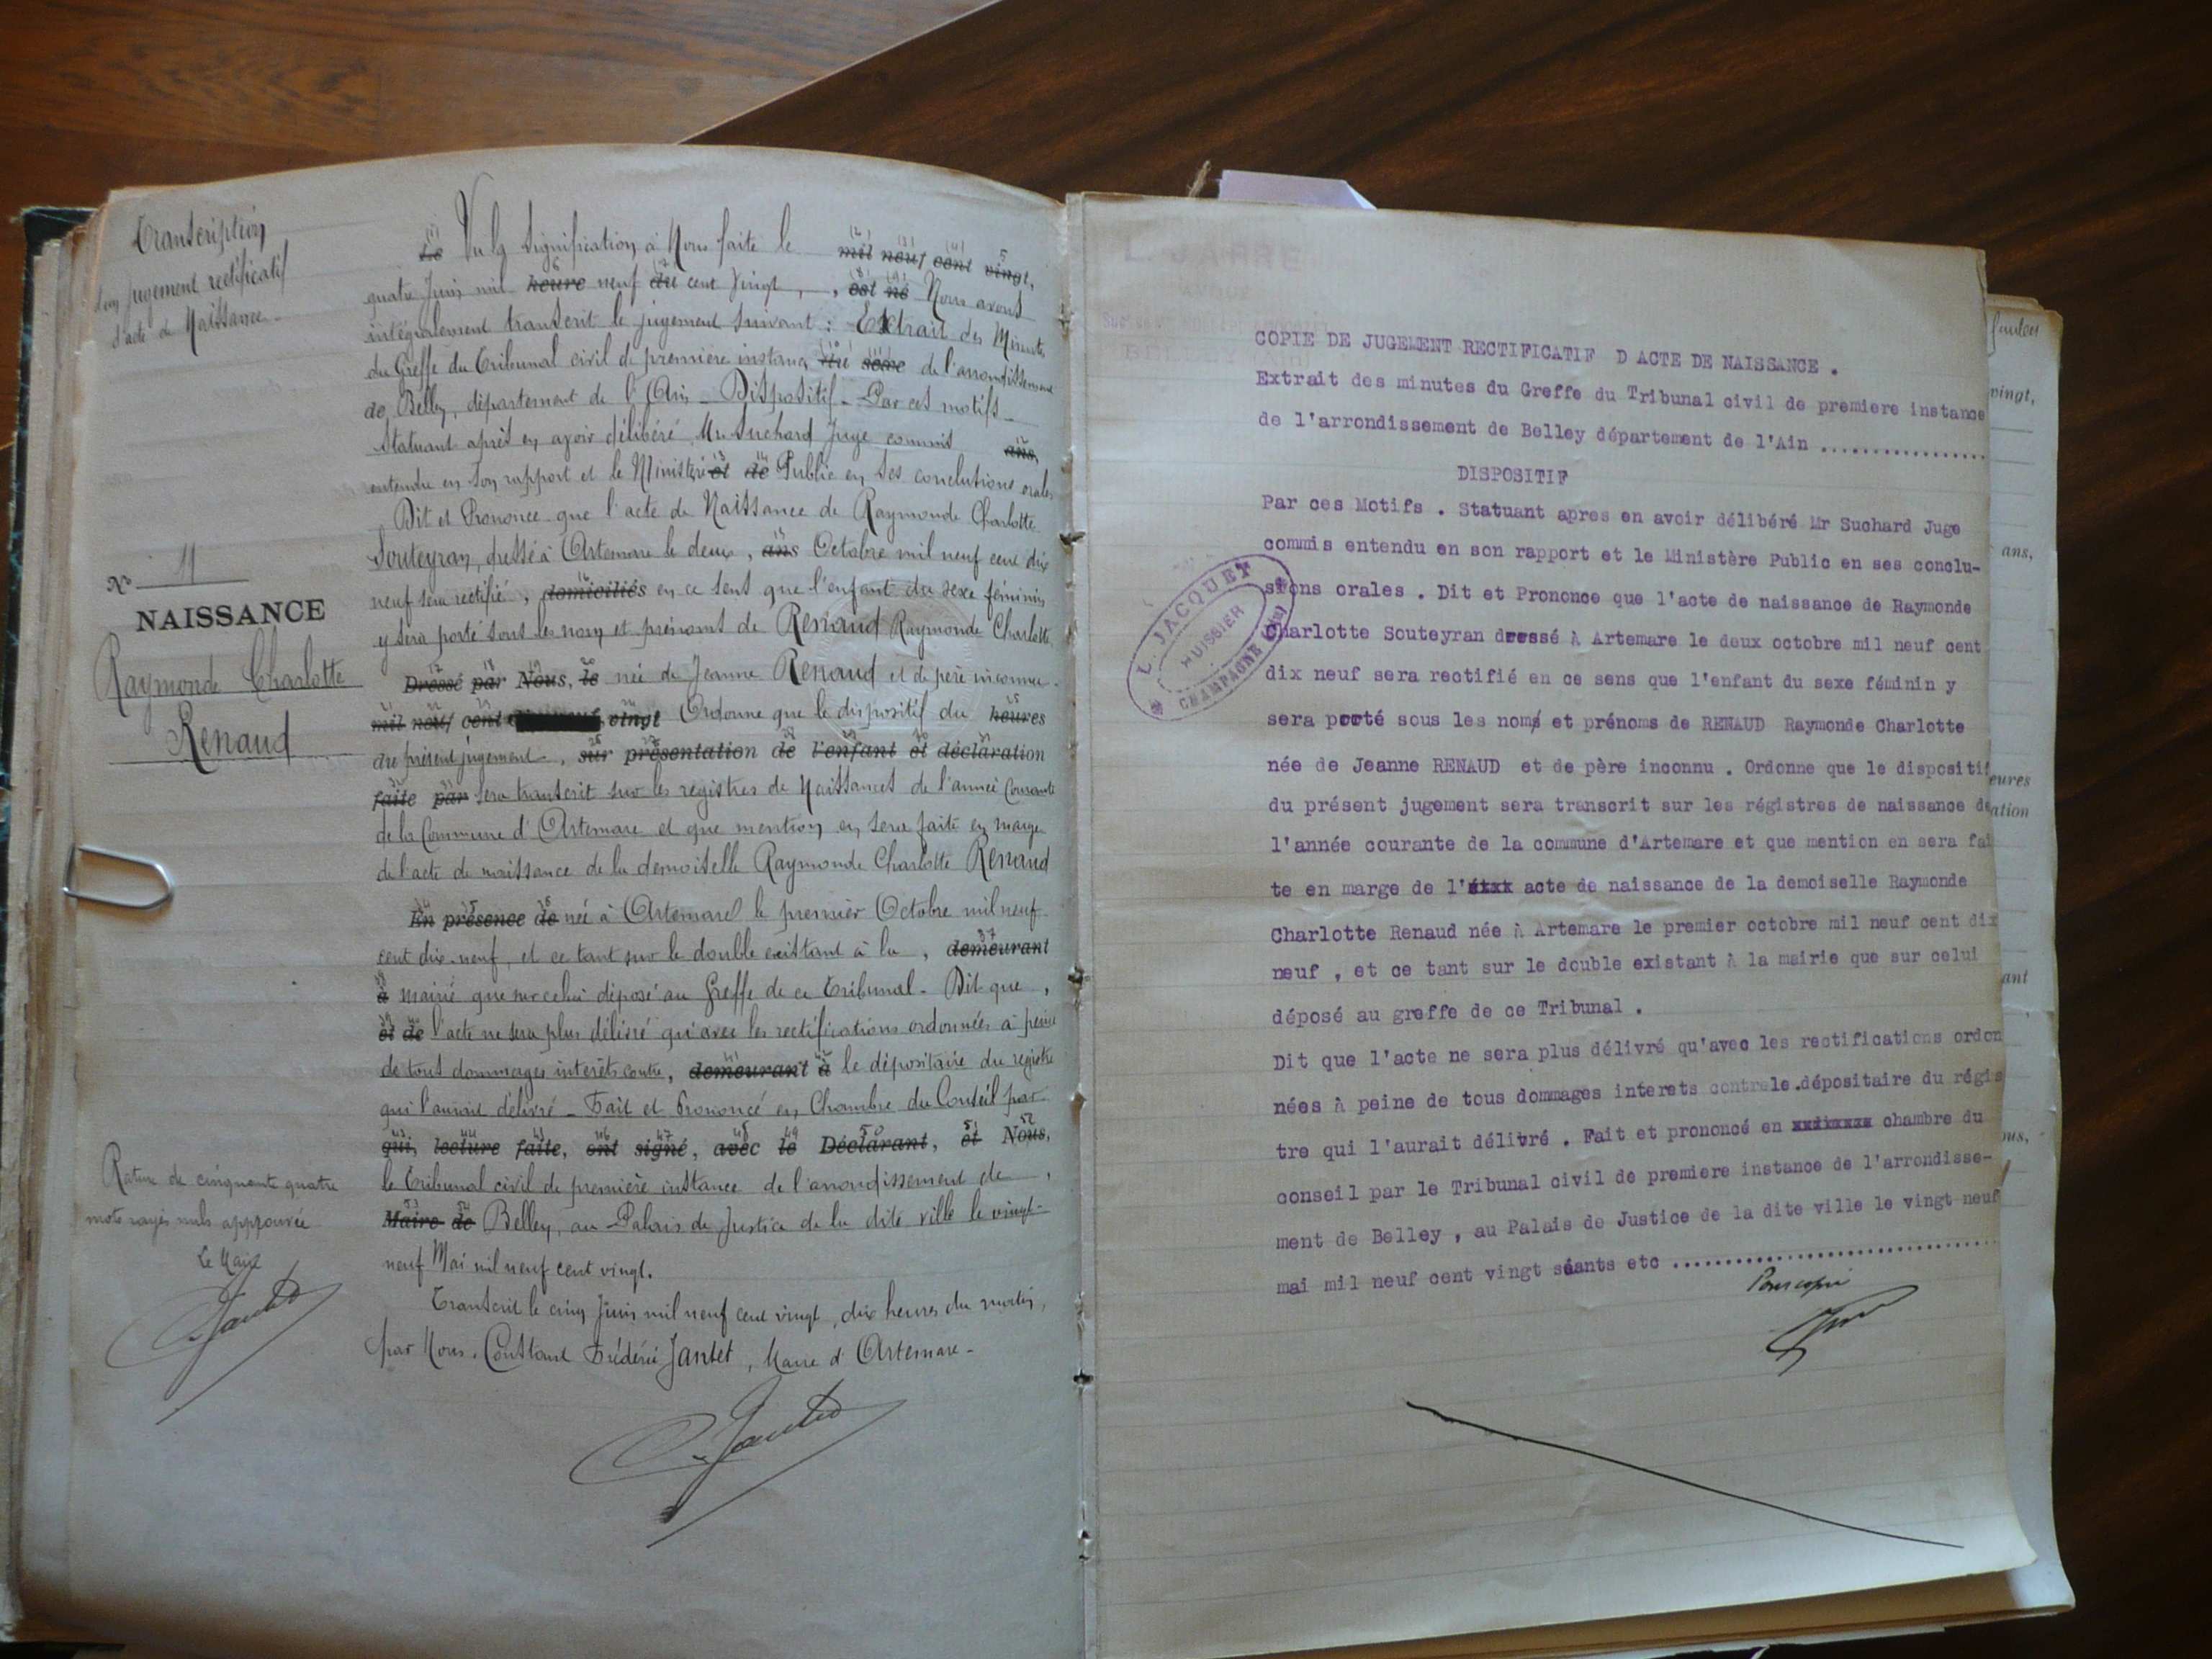 Transcription
d'un jugement rectificatif
d'acte de Naissance
N° 11
NAISSANCE
Raymonde Charlotte
Renaud
Rature de cinquante quatre
mots rayés nuls approuvée
Le Maire
Le Vu la signification à Nous faite le mil neuf cent vingt,
quatre Juin mil heure neuf du cent vingt, , est né Nous avons
intégralement transcrit le jugement suivant : Extrait des Minutes
du Greffe du Tribunal civil de première instance du sexe de l'arrondissement
de Belley, département de l'Ain - Dispositif - Par ces motifs -
Statuant après en avoir délibéré Mr. Suchard Juge commis ans,
entendu en son rapport et le Ministère et de Public en ses conclusions orales
Dit et Prononce que l'acte de Naissance de Raymonde Charlotte
Souteyran, dressé à Artemare le deux, ans Octobre mil neuf cent dix
neuf sera rectifié, domiciliés en ce sens que l'enfant du sexe féminin
y sera porté sous les nom et prénoms de Renaud Raymonde Charlotte
Dressé par Nous, le née de Jeanne Renaud et de père inconnu.
mil neuf cent vingt Ordonne que le dispositif du heures
du présent jugement, sur présentation de l'enfant et déclaration
faite par sera transcrit sur les registres de Naissances de l'année Courante
de la Commune d'Artemare et que mention en sera faite en marge
de l'acte de naissance de la demoiselle Raymonde Charlotte Renaud
En présence de née à Artemare le premier Octobre mil neuf
cent dix-neuf, et ce tant sur le double existant à la, demeurant
à mairie que sur celui déposé au Greffe de ce Tribunal - Dit que,
et de l'acte ne sera plus délivré qu'avec les rectifications ordonnées à peine
de tous dommages intérêts contre, demeurant à le dépositaire du registre
qui l'aurait délivré - Fait et Prononcé en Chambre du Conseil par
qui, lecture faite, ont signé, avec le Déclarant, et Nous,
le Tribunal civil de première instance de l'arrondissement de ,
Maire de Belley, au Palais de Justice de la dite ville le vingt-
neuf Mai mil neuf cent vingt.
Transcrit le cinq Juin mil neuf cent vingt, dix heures du matin,
par Nous, Constant Frédéric Jantet, Maire d'Artemare -
L. JARRE
AVOUÉ
COPIE DE JUGEMENT RECTIFICATIF D ACTE DE NAISSANCE .
Extrait des minutes du Greffe du Tribunal civil de premiere instance
de l'arrondissement de Belley département de l'Ain .................
DISPOSITIF
Par ces Motifs . Statuant apres en avoir délibéré Mr Suchard Juge
commis entendu en son rapport et le Ministère Public en ses conclu-
sions orales . Dit et Prononce que l'acte de naissance de Raymonde
Charlotte Souteyran dressé à Artemare le deux octobre mil neuf cent
dix neuf sera rectifié en ce sens que l'enfant du sexe féminin y
sera porté sous les noms et prénoms de RENAUD Raymonde Charlotte
née de Jeanne RENAUD et de père inconnu . Ordonne que le dispositif
du présent jugement sera transcrit sur les régistres de naissance de
l'année courante de la commune d'Artemare et que mention en sera fai
te en marge de l'acte de naissance de la demoiselle Raymonde
Charlotte Renaud née à Artemare le premier octobre mil neuf cent dix
neuf , et ce tant sur le double existant à la mairie que sur celui
déposé au greffe de ce Tribunal .
Dit que l'acte ne sera plus délivré qu'avec les rectifications ordon
nées à peine de tous dommages interets contrele.dépositaire du régis
tre qui l'aurait délivré . Fait et prononcé en xxxixxxx chambre du
conseil par le Tribunal civil de premiere instance de l'arrondisse-
ment de Belley , au Palais de Justice de la dite ville le vingt neuf
mai mil neuf cent vingt séants etc ................................
Pour copie
L. JACQUET
HUISSIER
CHAMPAGNE (Ain)
vingt,
ans,
eures
ation
ant
ous,